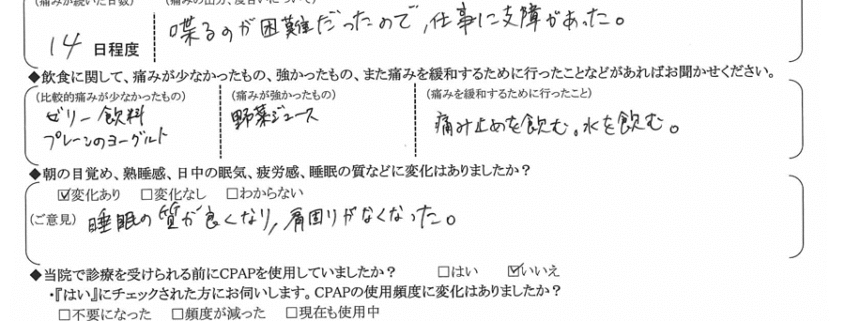 (痛みが続いた日数)
14 日程度
喋るのが困難だったので、仕事に支障があった。
◆飲食に関して、痛みが少なかったもの、強かったもの、また痛みを緩和するために行ったことなどがあればお聞かせください。
(比較的痛みが少なかったもの) (痛みが強かったもの) (痛みを緩和するために行ったこと)
ゼリー飲料
プレーンのヨーグルト
野菜ジュース
痛み止めを飲む。水を飲む。
◆朝の目覚め、熟睡感、日中の眠気、疲労感、睡眠の質などに変化はありましたか?
☑変化あり □変化なし □わからない
(ご意見) 睡眠の質が良くなり、肩困りがなくなった。
◆当院で診療を受けられる前にCPAPを使用していましたか? □はい ☑いいえ
・『はい』にチェックされた方にお伺いします。CPAPの使用頻度に変化はありましたか?
□不要になった □頻度が減った □現在も使用中